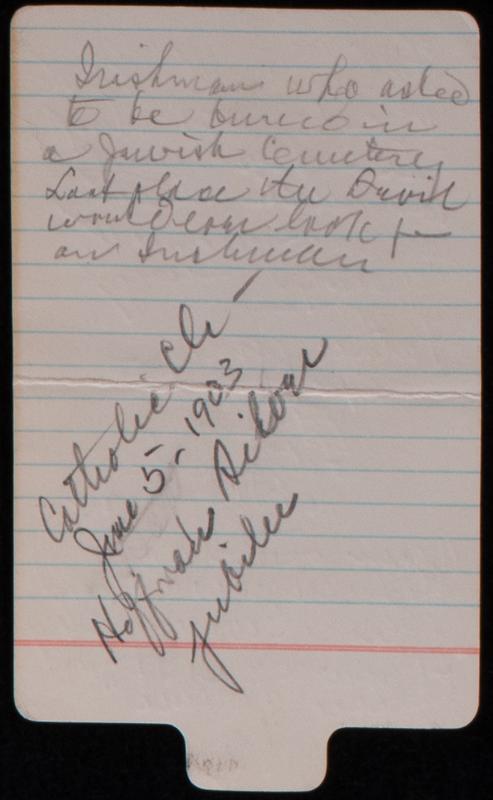 Irishman who asked
to be buried in
a Jewish Cemetery
Last place the Devil
would ever look for
an Irishman
Catholic Ch
June 5-1923
Hoffman Silver
jubilee